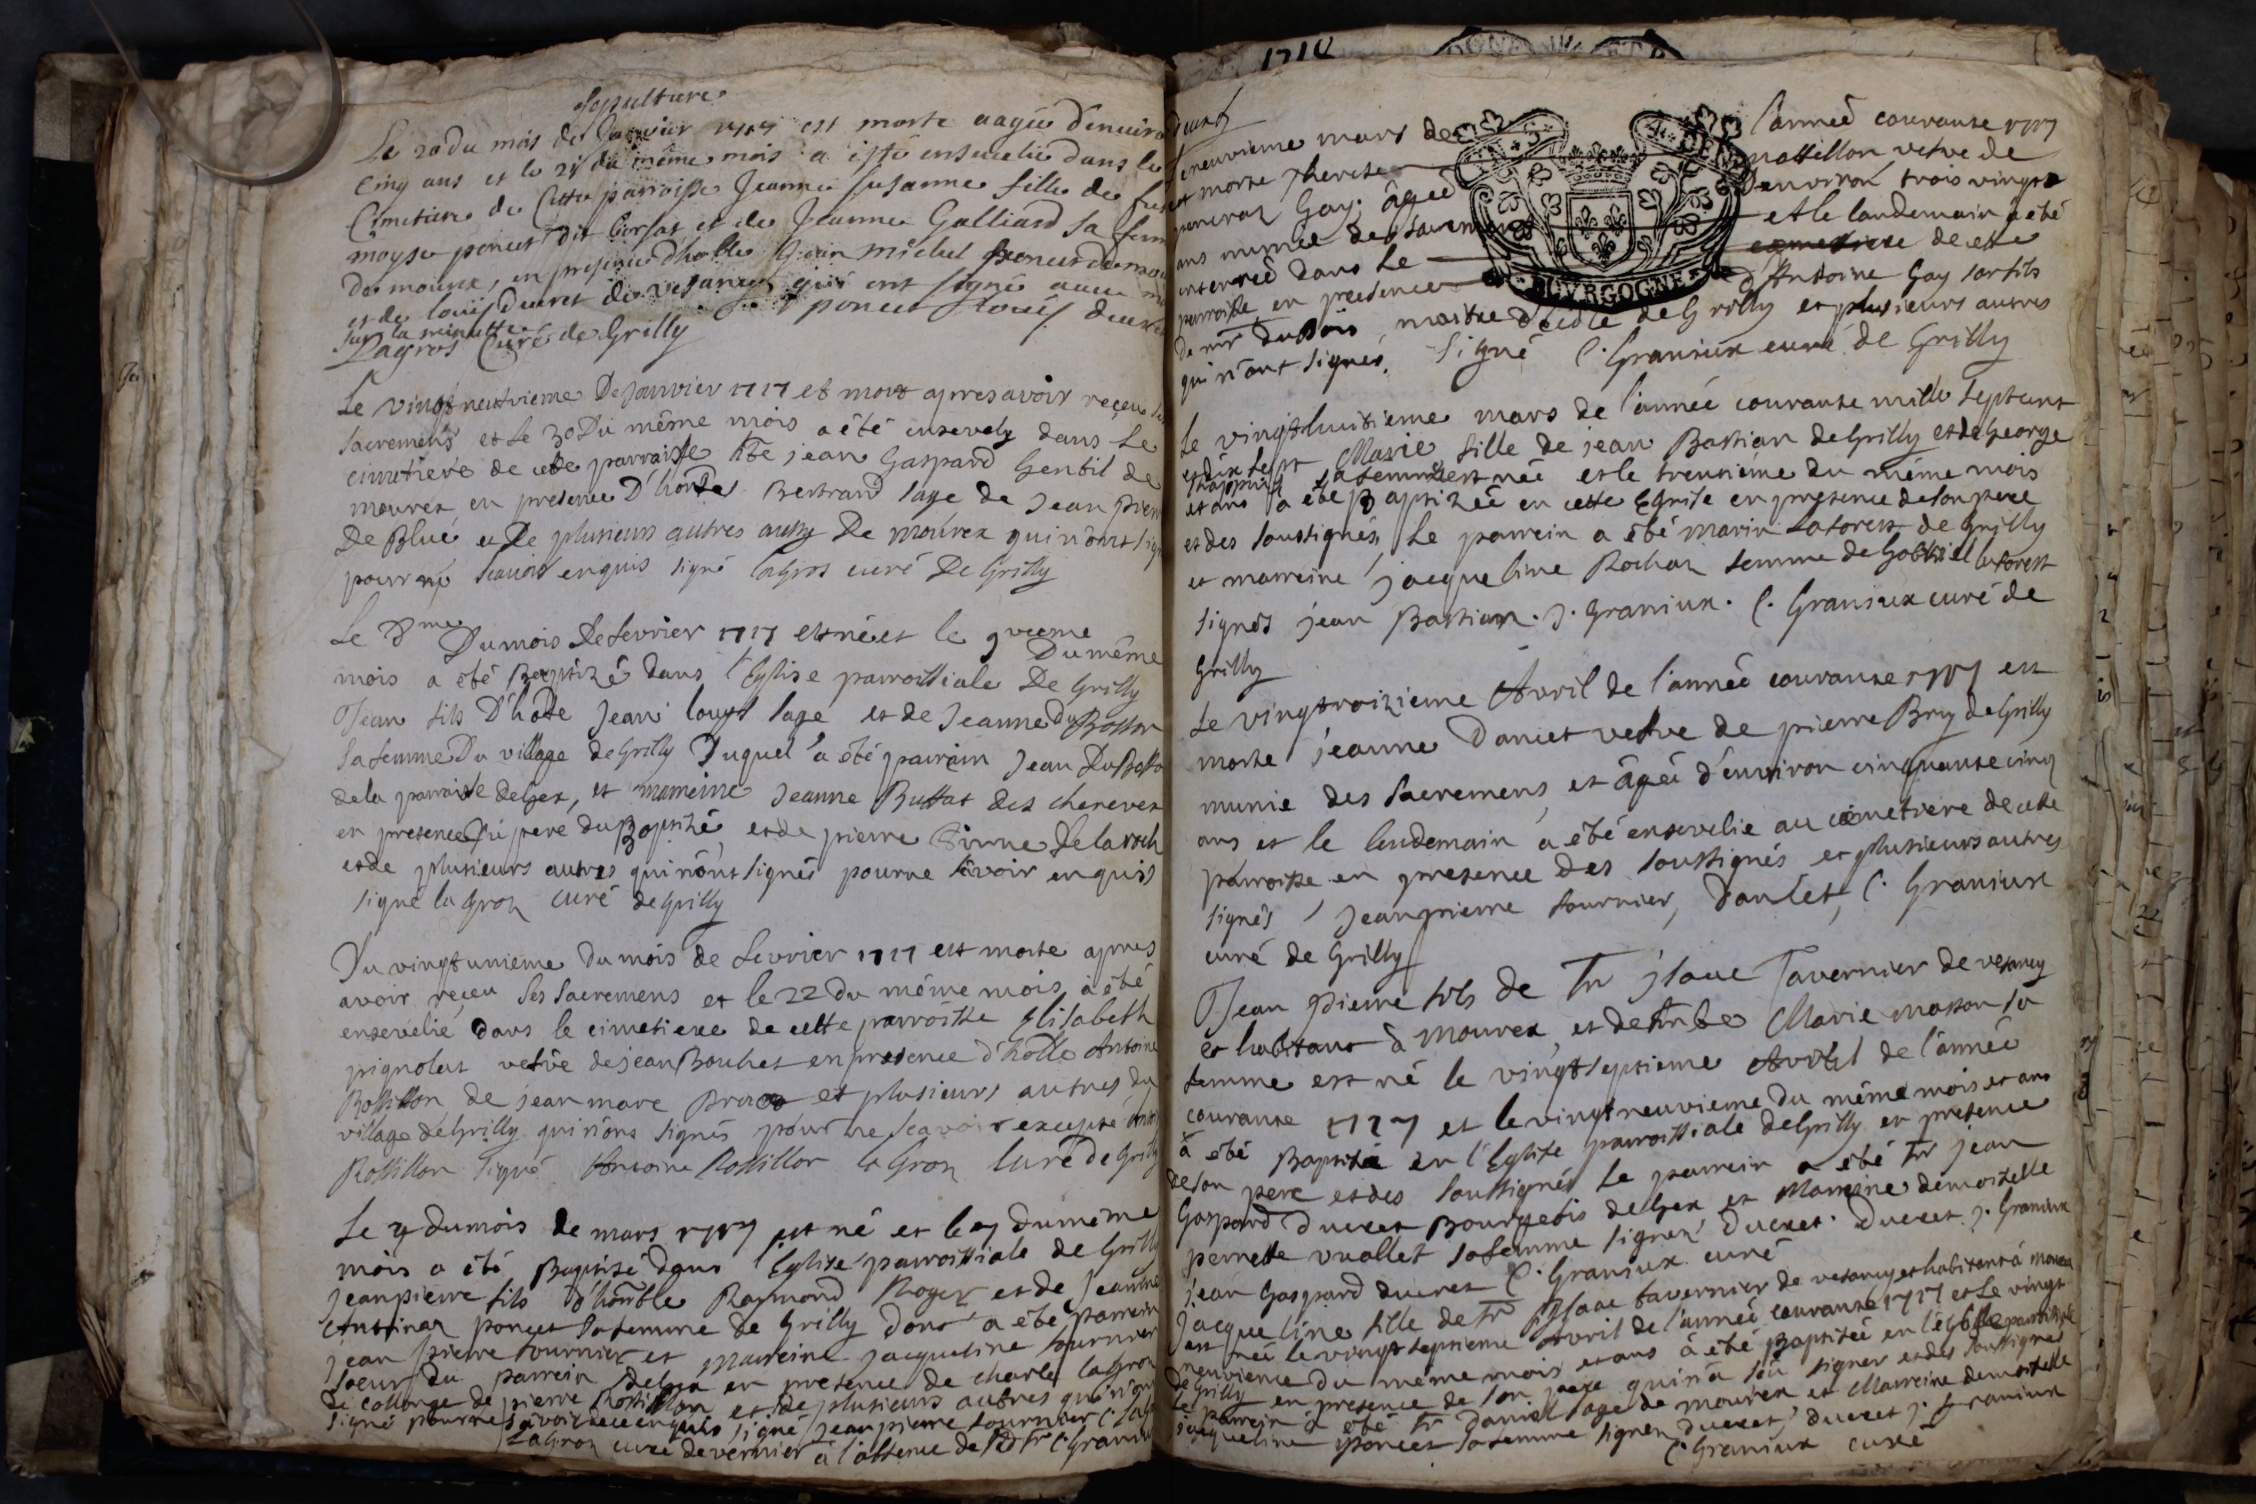 Sepulture
Le 20 du mois de Janvier 1717 est morte aagée d'environ
Cinq ans et le 21 du même mois a esté ensevelie dans le
Cimetiere de Cette parroisse Jeanne Susanne fille de feu
moyse poncet dit Corsat et de Jeanne Galliard sa fem
de mourex, en presence d'hoble Jean michel poncet de mou
et de louis Ducret de vesancy qui ont signé avec
sur la minutte poncet Louis ducret
Lagros Curé de Grilly
Le vingt neufvieme De Janvier 1717 est mort apres avoir reçeu les
sacremens et Le 30 Du même mois a été ensevely dans Le
cimetiere de cette parroisse jean Gaspard Gentil de
mourex en presence D'honble Bertrand sage de Jean
De Plué et De plusieurs autres aussy De mourex qui n'ont
pour ne scavoir enquis signé laGros curé De Grilly
Le 8me Du mois De fevrier 1717 est né et le 9vieme Du même
mois a été Baptizé dans l'Eglise parroissiale De Grilly
Jean fils D'hoble Jean louys sage et de Jeanne Du Bosson
sa femme Du village de Grilly Duquel a été parrain Jean
de la parroisse de Gex, et marreine Jeanne Buttat des
en presence Du pere du Baptizé et de pierre
et de plusieurs autres qui n'ont signés pour ne savoir enquis
signé la Gros curé de Grilly
Du vingt unieme Du mois de fevrier 1717 est morte apres
avoir reçeu ses sacremens et le 22 Du même mois a été
ensevelie dans le cimetiere de cette parroisse Elisabeth
pignolat vefve de jean Bouhet en presence d'hoble Antoine
Rossillon de jean marc et plusieurs autres du
village de Grilly qui n'ont signés pour ne scavoir excepté
Rossillon signé Antoine Rossillon la Gros Curé De Grilly
Le 4 du mois de mars 1717 est né et le du même
mois a été Baptisé dans l'Eglise parroissiale de Grilly
Jean pierre fils d'honble Raymond Roger et de Jeanne
Antoinaz poncet sa femme de Grilly Dont a été parrein
jean pierre fournier et marreine jacqueline fournier
soeur du parrein en presence de charle laGros
de collonge de pierre Rossillon et de plusieurs autres qui n'ont
signé pour ne savoir enquis signé Jean pierre fournier C.
LaGros curé de vernier à l'absence de C. Graniux
1718
Le neuvieme mars de l'année courante 1717
est morte Therese Rossillon vefve de
poncraz Gay âgée d'environ trois vingts
ans munie des sacremens et le landemain a été
enterrée dans Le cemetiere de cette
parroisse en presence d'Antoine Gay son fils
de mr duBois maitre d'école de Grilly et plusieurs autres
qui n'ont signés. Signé C. Graniux curé de Grilly
BOVRGOGNE
Le vingthuitieme mars de l'année courante mille septcent
et dix sept Marie fille de jean Bastian de Grilly et de George
sa femme est née et le trentième du même mois
et ans a été Baptizée en cette Eglise en presence de son pere
et des soussignés Le parrein a été marin Laforest de Grilly
et marreine jacqueline Rochaz femme de Gabriell laforest
signés jean Bastian. J. Graniux. C. Graniux curé de
Grilly
Le vingtroizieme Avril de l'année courante 1717 est
morte jeanne Dancet vefve de pierre Bry de Grilly
munie des sacremens et âgée d'environ cinquante cinq
ans et le lendemain a été ensevelie au cemetiere de cette
parroisse en presence des soussignés et plusieurs autres
signés Jeanpierre fournier, Dancet, C. Graniux
curé de Grilly
Jean pierre fils de Isaac Tavernier de vesancy
et habitant à mourex, et de Marie masson sa
femme est né le vingtseptieme Avril de l'année
courante 1717 et le vingtneuvieme du même mois et ans
a été Baptisé en l'Eglise parroissiale de Grilly en presence
de son pere et des soussignés Le parrein a été jean
Gaspard ducret Bourgeois de Gex et Marreine demoiselle
pernette vuallet sa femme signez ducret. ducret J. Graniux
jean Gaspard ducret C. Graniux curé
Jacqueline fille de Isaac tavernier de vesancy et habitant à mourex
est née le vingtseptieme Avril de l'année courante 1717 et le vingt
neuvieme du meme mois et ans à été Baptisée en l'église parroissiale
de Grilly en presence de son pere qui n'a sçu signer et des soussignés
Le parrein a été Daniel sage de mourex et Marreine demoiselle
jacqueline poncet sa femme signez ducret, ducret J. Graniux
C. Graniux curé